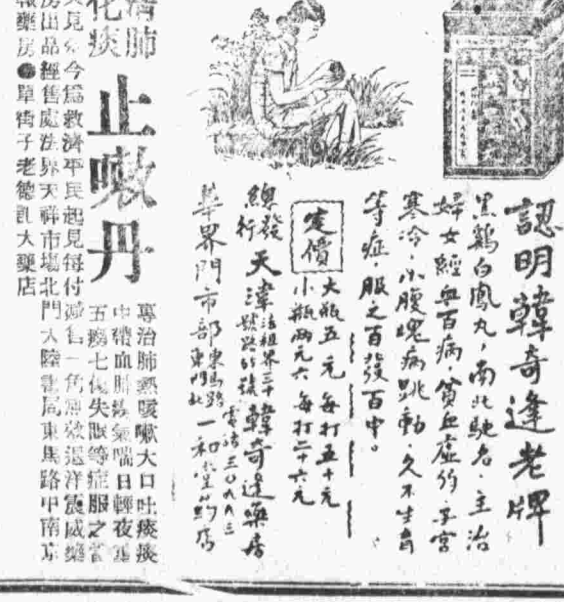 認明韓奇逢老牌
黑鷄白鳳丸，南北馳名，主治
婦女經血百病，貧血虛弱，子宮
寒冷，小腹塊病跳動，久不生育
等症，服之百發百中。
定價
大瓶五元 每打五十元
小瓶兩元六 每打二十六元
總發行
天津
法租界三十
韓奇逢藥房
電話三〇九八三
華界門市部
東馬路
東門北
一和堂药店
清肺
化痰
止嗽丹
專治肺熱咳嗽大口吐痰痰
中帶血肺痿氣喘日輕夜重
五癆七傷失眠等症服之當
見今為救濟平民起見每付減售一角無效退洋震威藥
房出品經售處法界天祥市場北門大陸書局東馬路中南京
藥房●單街子老德記大藥店